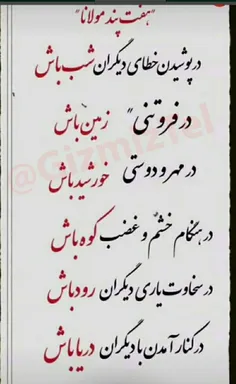 "هفت پند مولانا"
در پوشیدن خطای دیگران شب باش
در فروتنی زمین باش
در مهر و دوستی خورشید باش
در هنگام خشم و غضب کوه باش
در سخاوت و یاری دیگران رود باش
در کنار آمدن با دیگران دریا باش
@Gizmiztel